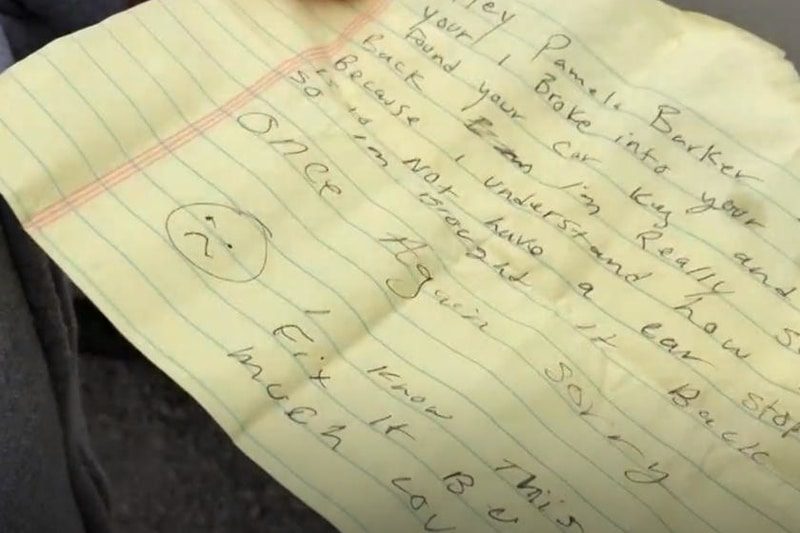 Hey Pamela Barker
your I Broke into your
Found your car key and
Back I'm Really
Because I understand how
is Not have a car
so im Brought it Back
Once Again sorry
I know This
Fix it
much